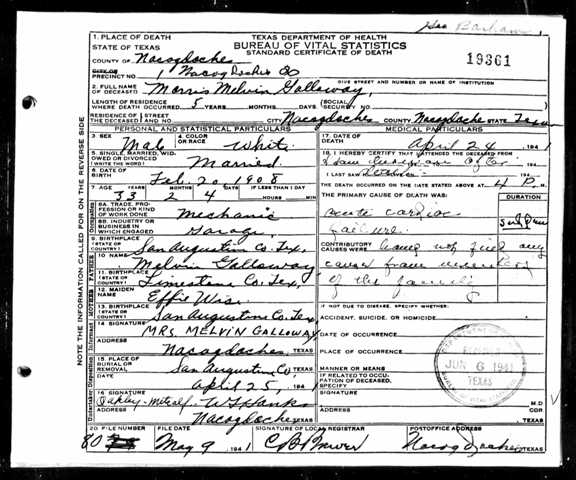 1. PLACE OF DEATH
STATE OF TEXAS
TEXAS DEPARTMENT OF HEALTH
BUREAU OF VITAL STATISTICS
STANDARD CERTIFICATE OF DEATH
19361
COUNTY OF Nacogdoches
CITY OR PRECINCT NO. 1 Nacogdoches Co
GIVE STREET AND NUMBER OR NAME OF INSTITUTION
2. FULL NAME OF DECEASED Morris Melvin Galloway,
LENGTH OF RESIDENCE WHERE DEATH OCCURRED 5 YEARS MONTHS DAYS (SOCIAL SECURITY
RESIDENCE OF THE DECEASED STREET AND NO. CITY Nacogdoches COUNTY Nacogdoches STATE Texas
PERSONAL AND STATISTICAL PARTICULARS
MEDICAL PARTICULARS
3. SEX Male 4. COLOR OR RACE White
17. DATE OF DEATH April 24, 1941
5. SINGLE, MARRIED, WIDOWED OR DIVORCED (WRITE THE WORD) Married
18. I HEREBY CERTIFY THAT I ATTENDED THE DECEASED FROM
I LAST SAW
6. DATE OF BIRTH Feb. 20, 1908
THE DEATH OCCURRED ON THE DATE STATED ABOVE AT 4 P. M.
7. AGE YEARS MONTHS DAYS IF LESS THAN 1 DAY
33 2 4 HOURS MIN
THE PRIMARY CAUSE OF DEATH WAS:
DURATION
8A. TRADE, PROFESSION OR KIND OF WORK DONE Mechanic
acute cardiac
8B. INDUSTRY OR BUSINESS IN WHICH ENGAGED Garage
failure.
9. BIRTHPLACE (STATE OR COUNTRY) San Augustine Co. Tex,
CONTRIBUTORY CAUSES WERE: not find any
10. NAME Melvin Galloway
cause from
11. BIRTHPLACE (STATE OR COUNTRY) Limestone Co. Tex,
of the family
12. MAIDEN NAME Effie Wise
IF NOT DUE TO DISEASE, SPECIFY WHETHER:
13. BIRTHPLACE (STATE OR COUNTRY) San Augustine Co. Tex,
ACCIDENT, SUICIDE, OR HOMICIDE
14 SIGNATURE MRS. MELVIN GALLOWAY
DATE OF OCCURRENCE
ADDRESS Nacogdoches TEXAS
PLACE OF OCCURRENCE
15. PLACE OF BURIAL OR REMOVAL San Augustine Co TEXAS
MANNER OR MEANS
April 25, 1941
IF RELATED TO OCCUPATION OF DECEASED, SPECIFY
JUN 6 1941
TEXAS
16 SIGNATURE Oakley-Metcalf
SIGNATURE M.D.
ADDRESS Nacogdoches TEXAS
ADDRESS TEXAS
20 FILE NUMBER FILE DATE SIGNATURE OF LOCAL REGISTRAR POSTOFFICE ADDRESS
80 May 9 1941 Nacogdoches TEXAS
NOTE THE INFORMATION CALLED FOR ON THE REVERSE SIDE
Occupation
FATHER
MOTHER
Informant
Undertaker Disposition